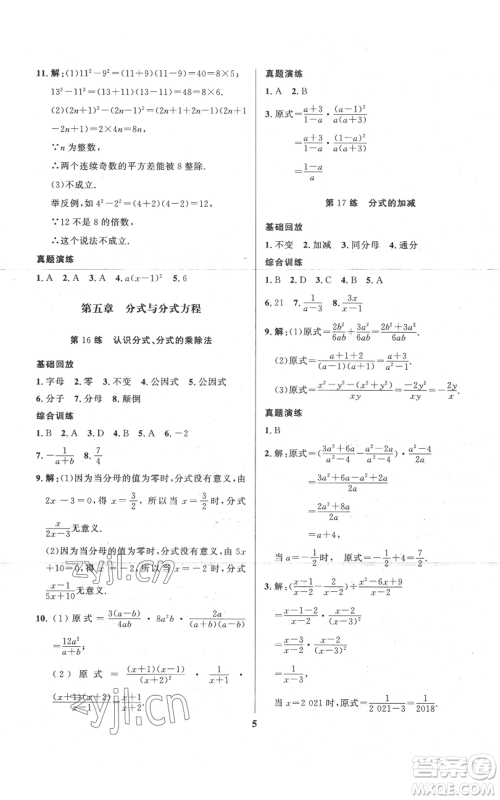 11. 解:(1)11²－9²=(11+9)(11－9)=40=8×5.
13²－11²=(13+11)(13－11)=48=8×6.
(2)(2n+1)²－(2n－1)²=(2n+1+2n－1)(2n+1－2n+1)=8n.
∵n为整数,
∴两个连续奇数的平方差能被8整除.
(3)不成立.
举反例,如4²－2²=(4+2)(4－2)=12,
∵12不是8的倍数,
∴这个说法不成立.
真题演练
1. A 2. A 3. A 4. a(x－1)² 5. 6
第五章 分式与分式方程
第16练 认识分式、分式的乘除法
基础回放
1. 字母 2. 零 3. 不变 4. 公因式 5. 公因式
6. 分子 7. 分母 8. 颠倒
综合训练
1. B 2. A 3. D 4. A 5. A 6. －2
7. －1/(a+b) 8. 7/4
9. 解:(1)因为当分母的值为零时,分式没有意义,由
2x－3=0,得x=3/2,所以当x=3/2时,分式
x/(2x－3)无意义.
(2)因为当分母的值为零时,分式没有意义,由5x
+10=0,得x=－2,所以当x=－2时,分式
(x－1)/(5x+10)无意义.
10. (1)原式=3(a－b)/4ab · 8a²b · 2a/(a+b)(a－b)
=12a²/(a+b).
(2)原式=(x+1)(x－1)/(x－1)² ·
(x+1)(x－1)/x(x－1) · x/(x+1)=(x+1)/(x－1).
真题演练
1. A 2. B
3. 原式=(a+3)/(1－a) · (a－1)²/a(a+3)
=(a+3)/(1－a) · (1－a)²/a(a+3)
=(1－a)/a.
第17练 分式的加减
基础回放
1. 不变 2. 加减 3. 同分母 4. 通分
综合训练
1. B 2. D 3. C 4. A 5. A
6. 21 7. 1/(a－b) 8. 3/(x－1)
9. 解:(1)原式=2b²/6ab+a²/6ab=(2b²+a²)/6ab.
(2)原式=(a+1+2)/(a+1)(a－1)=(a+3)/(a²－1).
(3)原式=(x²－y²－x²－y²)/xy=－2y²/xy=－2y/x.
真题演练
1. B
2. 解:原式=((3a²+6a)/(a²－4)－(a²－2a)/(a²－4)) · (a²－4)/2a
=(2a²+8a)/2a
=a+4,
当a=－1/2时,原式=－1/2+4=7/2.
3. 解:原式=((x－1)/(x－2)－2/(x－2))÷(x²－6x+9)/(x－2)
=(x－1－2)/(x－2) · (x－2)/(x－3)²
=(x－3)/(x－2) · (x－2)/(x－3)²
=1/(x－3),
当x=2 021时,原式=1/(2 021－3)=1/2018.
5
zyjl.cn
zyjl.cn